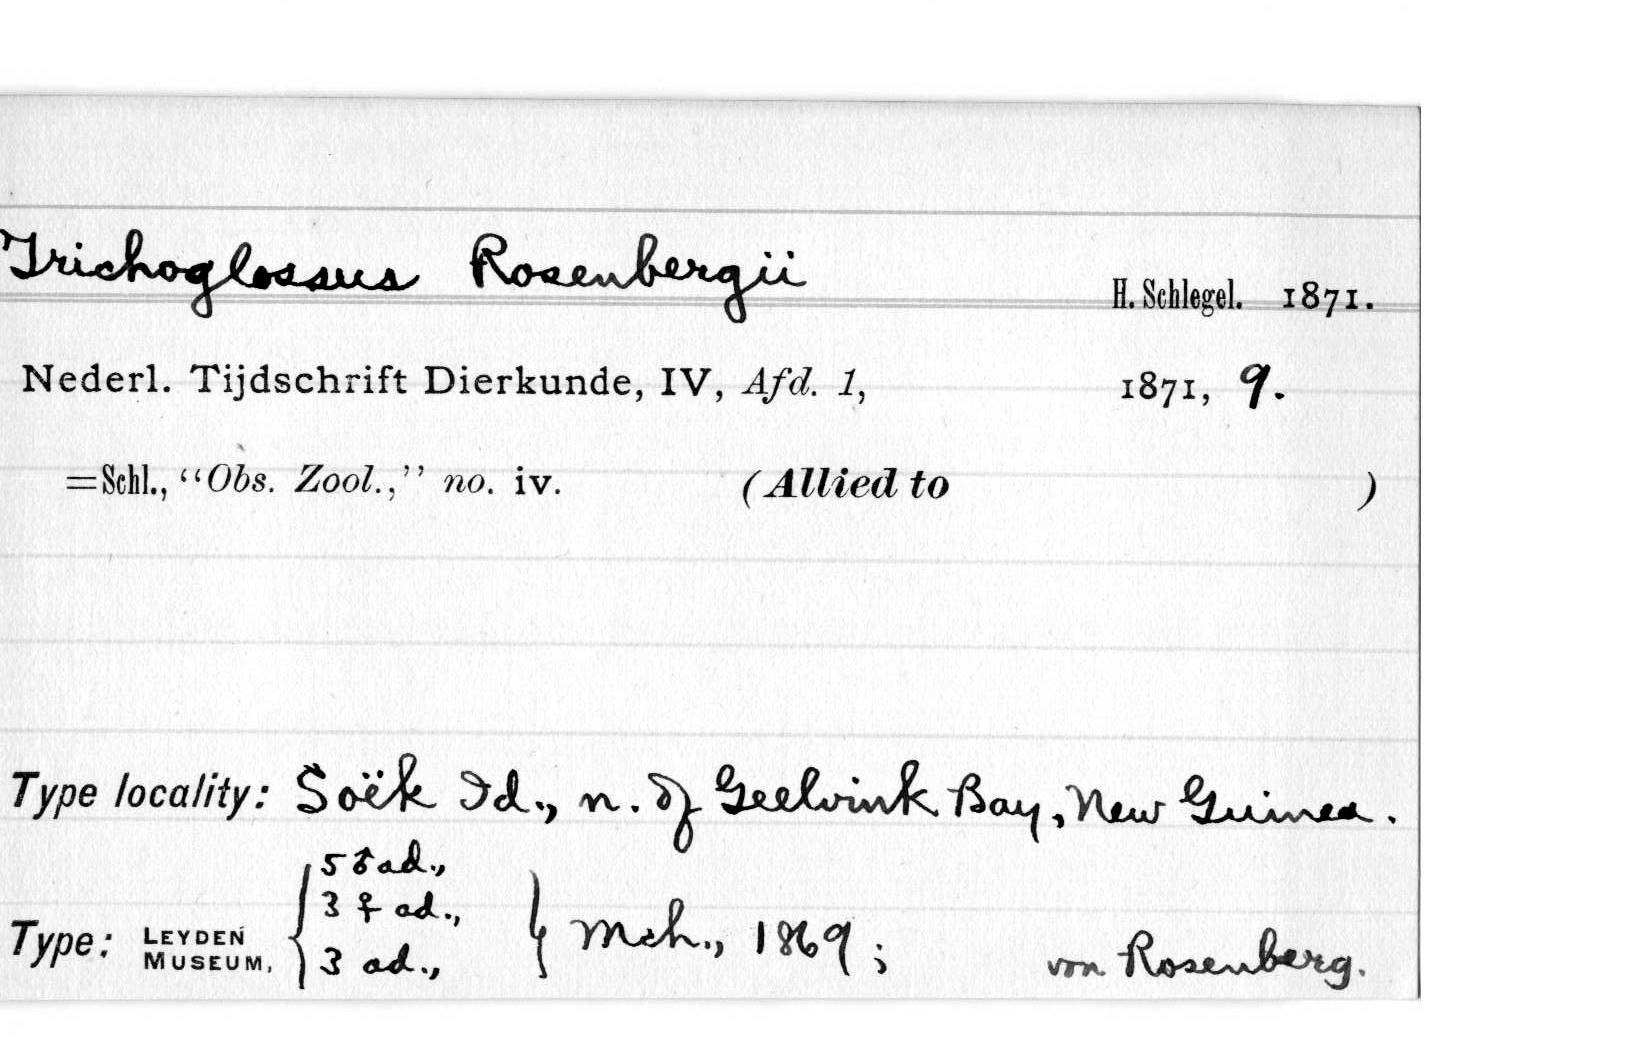 Trichoglossus Rosenbergii H. Schlegel. 1871.
Nederl. Tijdschrift Dierkunde, IV, Afd. 1, 1871, 9.
=Schl., “Obs. Zool.,” no. iv. (Allied to )
Type locality: Soëk Id., n. of Geelvink Bay, New Guinea.
Type: LEYDEN MUSEUM, { 5 ♂ ad.,
3 ♀ ad.,
3 ad., } Mch., 1869; von Rosenberg.